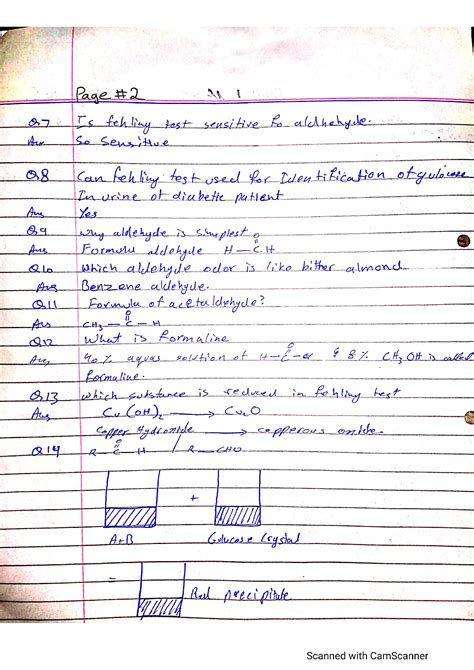 Page #2
Q7 Is fehling test sensitive to aldhehyde.
Ans So Sensitive
Q8 Can fehling test used for Identification of gulucose
In urine of diabetic patient
Ans Yes
Q9 why aldehyde is simplest
O
Ans Formula aldehyde H — C H
Q10 Which aldehyde odor is like bitter almond
Ans Benzene aldehyde.
Q11 Formula of acetaldehyde?
O
Ans CH3 — C — H
Q12 What is formaline
Ans 40% aquas solution of H—C— & 8% CH3OH is called
formaline.
Q13 which substance is reduced in fehling test
Ans Cu(OH)2 → Cu2O
Copper Hydroxide → copperous oxide.
O
Q14 R — C — H / R — CHO
+
A+B Gulucose Crystal
=
Red precipitate
Scanned with CamScanner